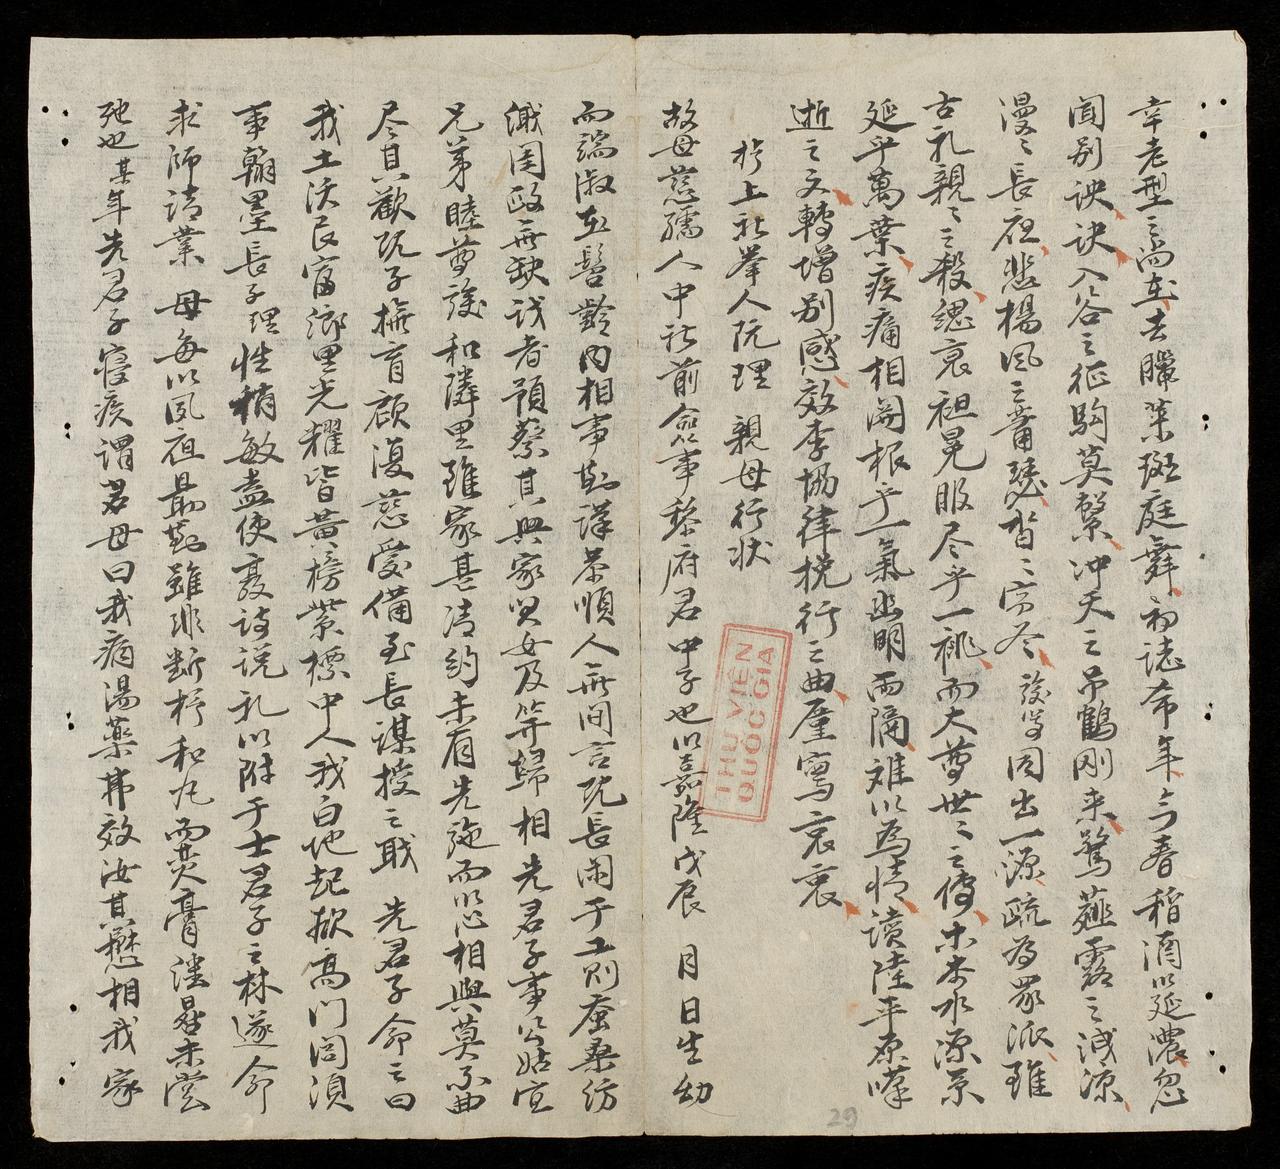 幸老型之尚在去臘萊斑庭舞初誌希年今春稻酒以延濃忽
聞别訣訣入谷之征駒莫縶冲天之吊鶴刚来鶩薤露之淺凉
漫〻長夜悲楊風之蕭瑟沓〻𡧲尽誼等因出一源疏為眾派雖
古礼親〻之殺緦哀袒免服尽乎一祧而大尊世〻之傳木本水源京
延乎萬葉疾痛相関根乎一氣幽明而隔难以為情讀陸平原嘆
逝之文轉增别感效李協律挽行之曲聊寫哀衷
於上社举人阮理 親母行狀
故母慈孺人中社前僉事黎府君中子也以嘉隆戊辰 月日生幼
而端淑在髫齡内相事勤謹恭順人無间言既長闲于工则蚕桑紡
織閫政無缺議者預蔡其興家兒女及笄歸相先君子事公姑宜
兄弟睦尊族和隣里雖家甚清約未有先施而以心相與莫不曲
尽其歡既子撫育顧復慈愛備至長謀授之職 先君子命之曰
我土沃民富鄉里光耀皆黄榜紫標中人我白地起掀高门閭須
事翰墨長子理性稍敏盍使敦詩説礼以附于士君子之林遂命
求师請業 母每以夙夜最勤雖非断杼和丸而焚膏達晷未嘗
弛也某年先君子寝疾謂君母曰我病湯藥弗效汝其懋相我家
THƯ VIỆN
QUỐC GIA
29